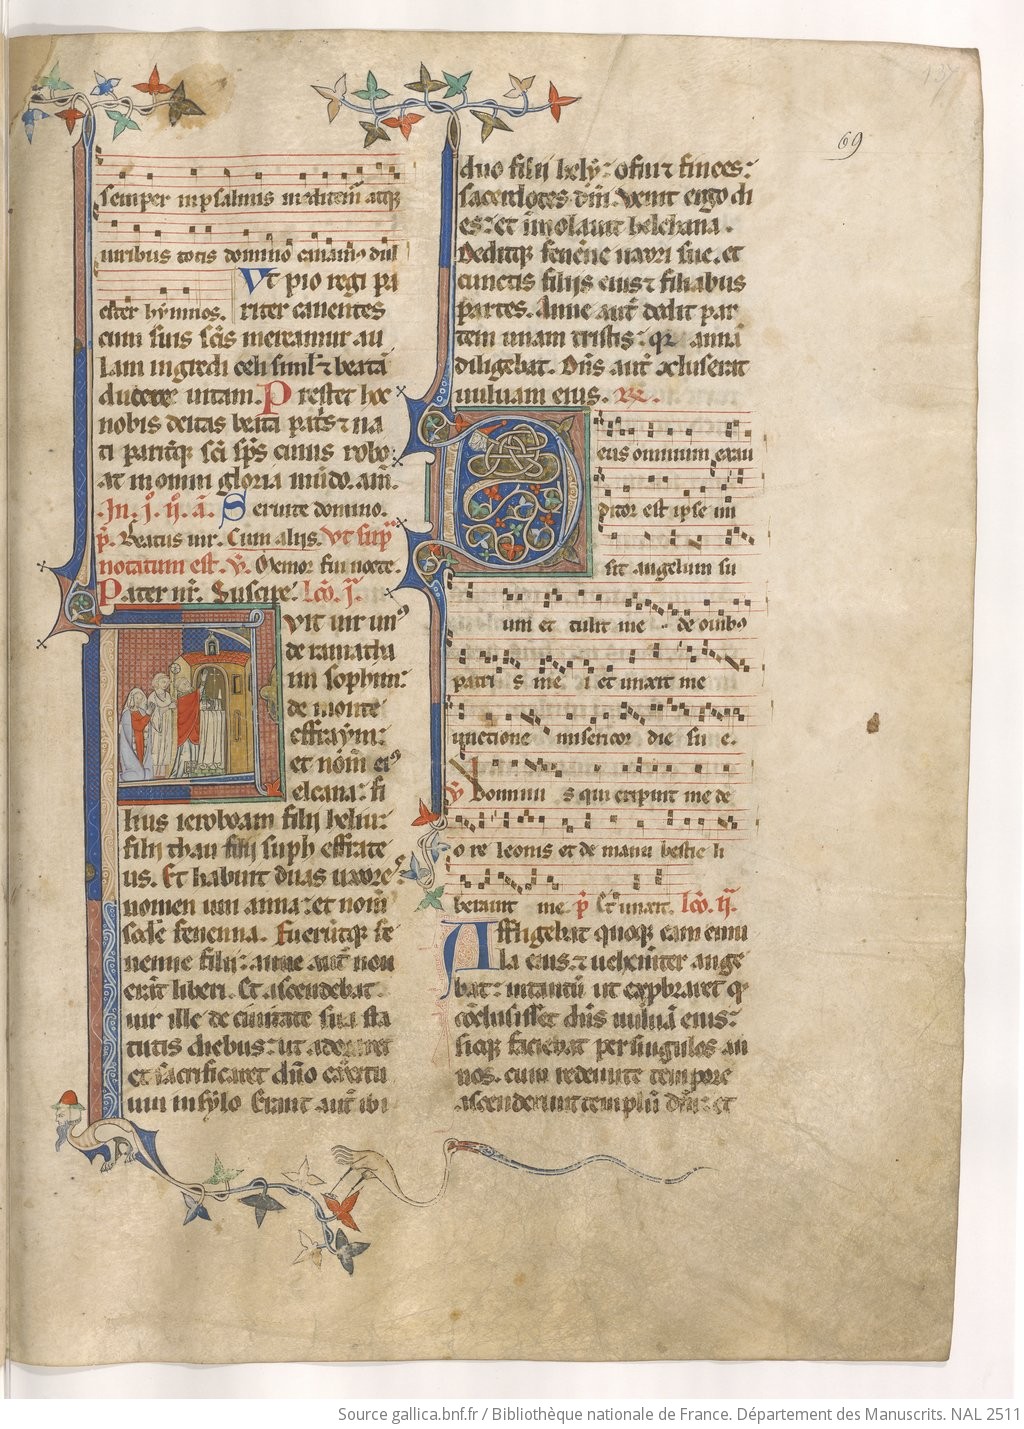 137
69
semper in psalmis meditem atq3
viribus totis domino canam9 dul
Ut pio regi pa
citer hymnos. riter canentes
cum suis scis mereamur au
lam ingredi celi simul ⁊ beatā
ducere uitam. Prestet hoc
nobis deitas beata patris ⁊ na
ti pariterq3 sci sps cuius rebo
at in omni gloria mūdo. am̄.
In. j. n. a. Seruite domino.
p̄. Beatus uir. Cum alijs. Vt sup
notatum est. v̄. Memor fui nocte.
Pater nr̄. Suscipe. lcō. j.ª
Fuit uir un9
de ramatha
im sophim:
de monte
effraym:
et nōm ei9
elcana: fi
lius ieroboam filij heliu:
filij thau filij suph effrate
us. Et habuit duas uxores:
nomen uni anna: et nom̄
scd̄e fenenna. Fuerūtq3 fe
nenne filij: anne aut̄ non
erāt liberi. Et ascendebat
uir ille de ciuitate sua sta
tutis diebus: ut adoraret
et sacrificaret dño exercitu
um in sylo. Erant aut̄ ibi
duo filij hely: ofni ⁊ finees:
sacerdotes dñi. Venit ergo di
es: et īmolauit helchana.
Deditq3 fenēne uxori sue. et
cunctis filijs eius ⁊ filiabus
partes. Anne aut̄ dedit par
tem unam tristis: q2 annā
diligebat. Dñs aut̄ 9cluserat
uuluam eius. R̄.
Deus omnium exau
ditor est ipse mi
sit angelum su
um et tulit me de ouib9
patris me i et unxit me
unctione misericor die su e.
v̄ Dominus qui eripuit me de
o re leonis et de manu bestie li
berauit me. p̄ Et unxit. lcō. ij.ª
Affligebat quoq3 eam emu
la eius. ⁊ uehem̄ter ange
bat: intantū ut exp̄braret q
cōclusisset dñs uuluā eius:
sicq3 faciebat per singulos an
nos. cum redeunte tempore
ascenderent templū dñi: et
Source gallica.bnf.fr / Bibliothèque nationale de France. Département des Manuscrits. NAL 2511